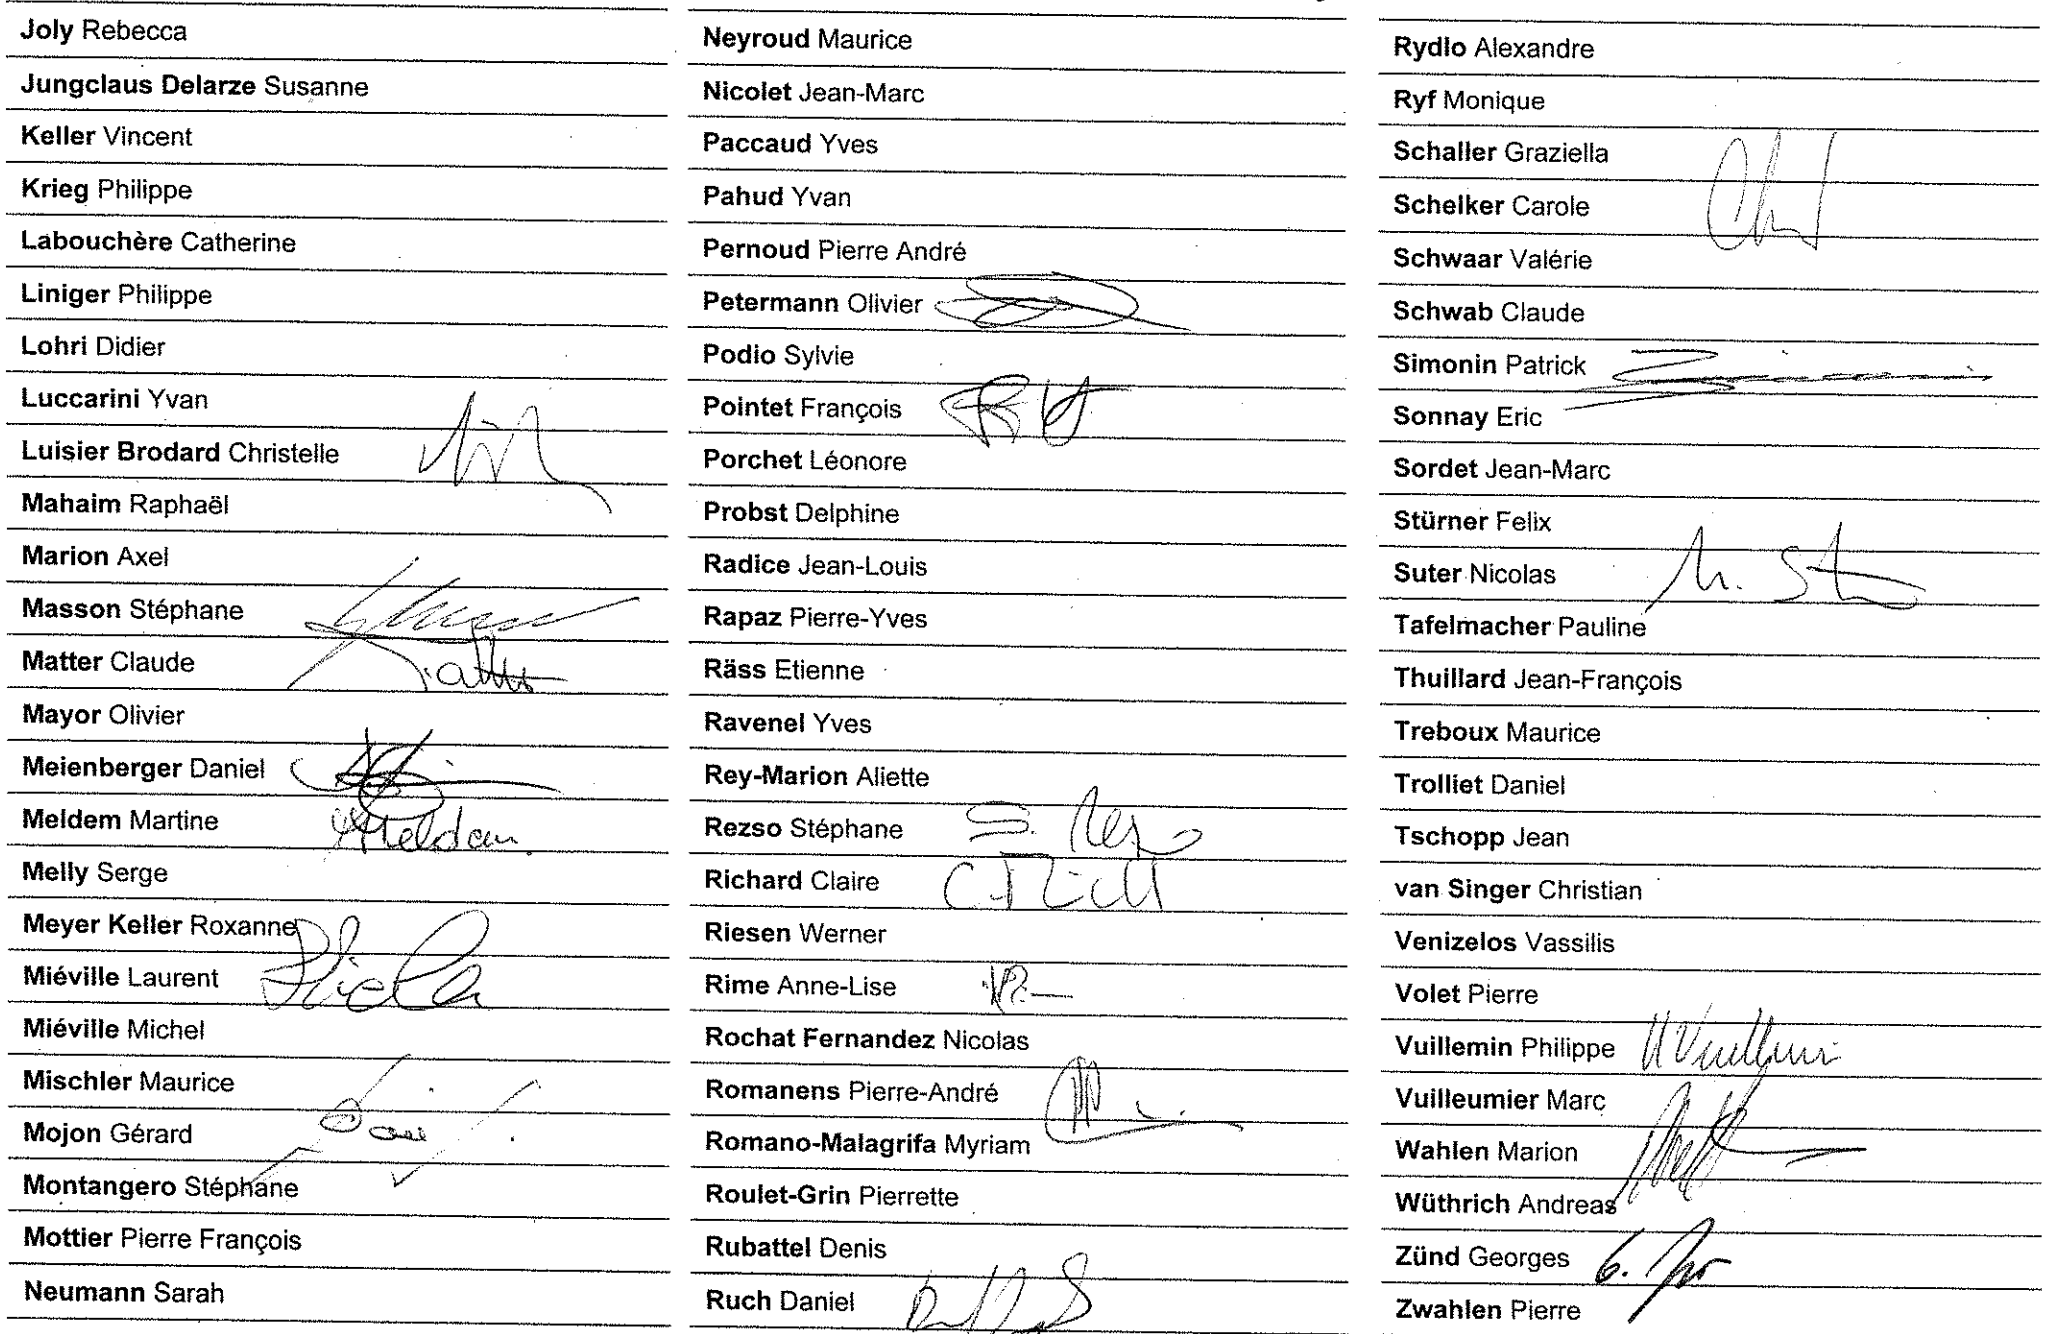 Joly Rebecca
Jungclaus Delarze Susanne
Keller Vincent
Krieg Philippe
Labouchère Catherine
Liniger Philippe
Lohri Didier
Luccarini Yvan
Luisier Brodard Christelle
Mahaim Raphaël
Marion Axel
Masson Stéphane
Matter Claude
Mayor Olivier
Meienberger Daniel
Meldem Martine
Meldem
Melly Serge
Meyer Keller Roxanne
Miéville Laurent
Miéville Michel
Mischler Maurice
Mojon Gérard
Montangero Stéphane
Mottier Pierre François
Neumann Sarah
Neyroud Maurice
Nicolet Jean-Marc
Paccaud Yves
Pahud Yvan
Pernoud Pierre André
Petermann Olivier
Podio Sylvie
Pointet François
Porchet Léonore
Probst Delphine
Radice Jean-Louis
Rapaz Pierre-Yves
Räss Etienne
Ravenel Yves
Rey-Marion Aliette
Rezso Stéphane S. Rezso
Richard Claire
Riesen Werner
Rime Anne-Lise
Rochat Fernandez Nicolas
Romanens Pierre-André
Romano-Malagrifa Myriam
Roulet-Grin Pierrette
Rubattel Denis
Ruch Daniel
Rydlo Alexandre
Ryf Monique
Schaller Graziella
Schelker Carole
Schwaar Valérie
Schwab Claude
Simonin Patrick
Sonnay Eric
Sordet Jean-Marc
Stürner Felix
Suter Nicolas
Tafelmacher Pauline
Thuillard Jean-François
Treboux Maurice
Trolliet Daniel
Tschopp Jean
van Singer Christian
Venizelos Vassilis
Volet Pierre
Vuillemin Philippe
Vuilleumier Marc
Wahlen Marion
Wüthrich Andreas
Zünd Georges
Zwahlen Pierre